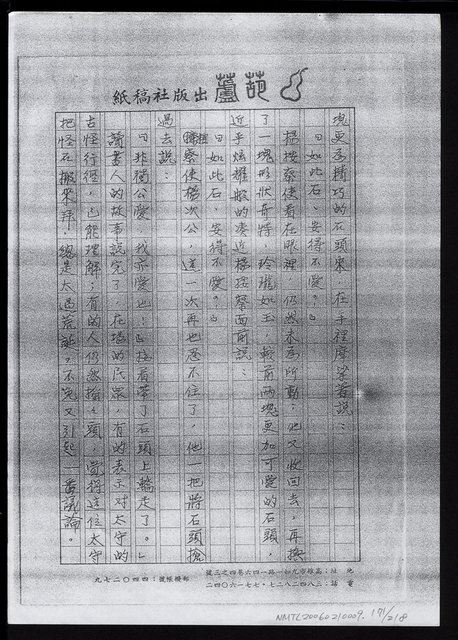 葫蘆出版社稿紙
塊更為精巧的石頭來，在手裡摩娑着說：
「如此石，安得不愛？」
楊按察使看在眼裡，仍然未為所動；他又收回去，再換
了一塊形狀奇特，玲瓏如玉，較前兩塊更加可愛的石頭，
近乎炫耀般的湊近楊按察面前說：
「如此石，安得不愛？」
按察使楊次公，這一次再也忍不住了，他一把將石頭搶
過去說：
「非獨公愛，我亦愛也！」接着帶了石頭上轎走了。」
讀書人的故事說完了，在場的民眾，有的表示對太守的
古怪行徑，已能理解；有的人仍然搖搖頭，覺得這位太守
把怪石搬來拜，總是太過荒誕。不免又引起一番議論。
地址：高雄市九如一路一四六巷四之三號
電話：三八四二八二七·七七一六〇四二
郵撥帳號：四四〇二七九
NMTL20060210009. 171/218